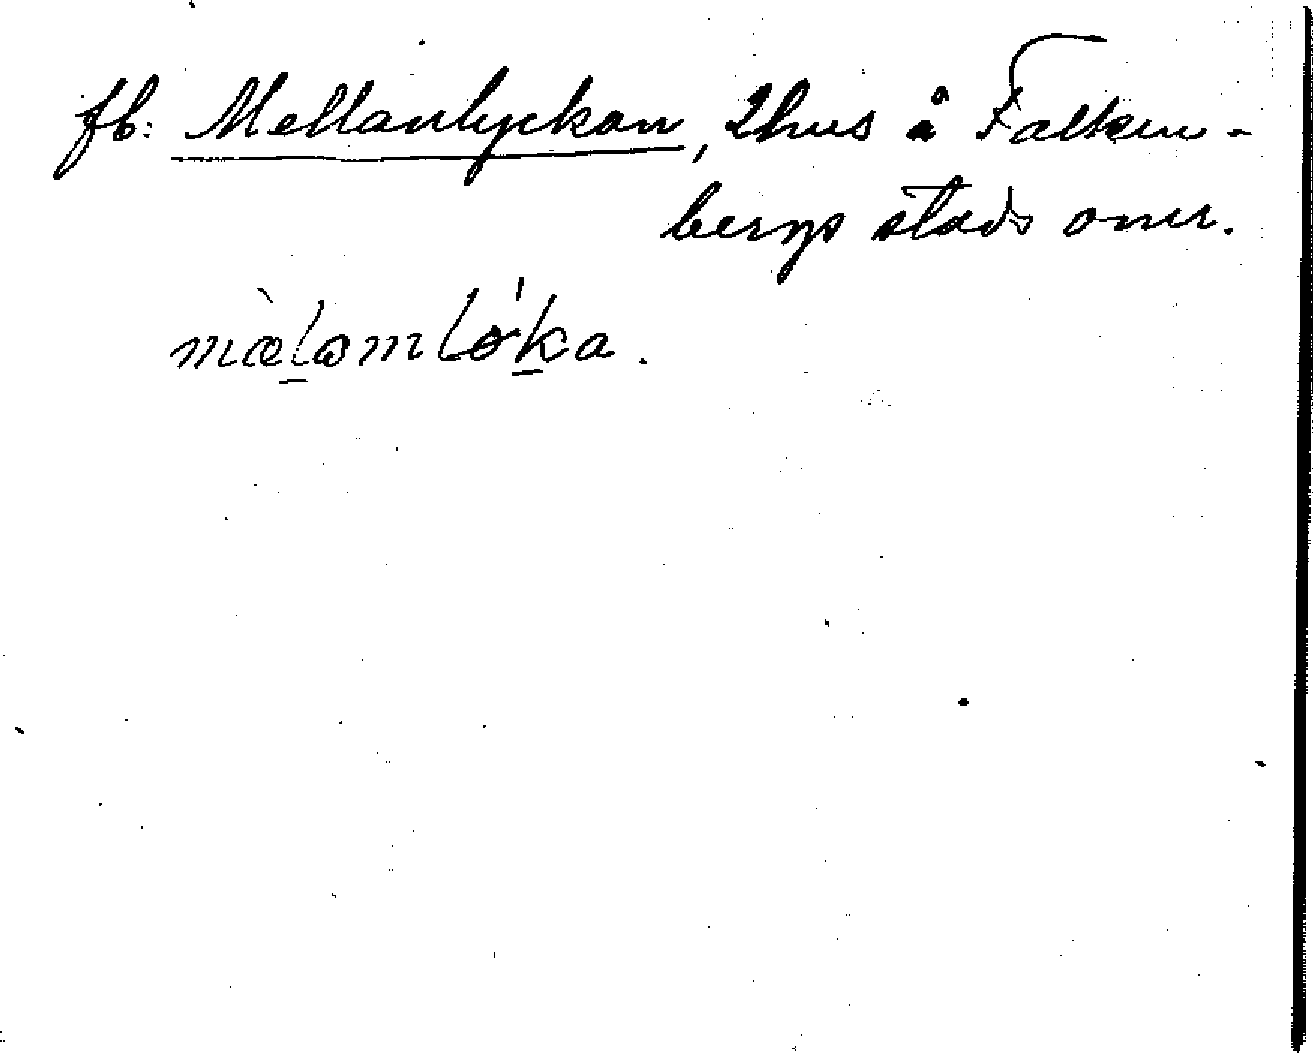 fb: Mellanlyckan, 2 hus å Falken-
bergs stads omr.
mælamløka.